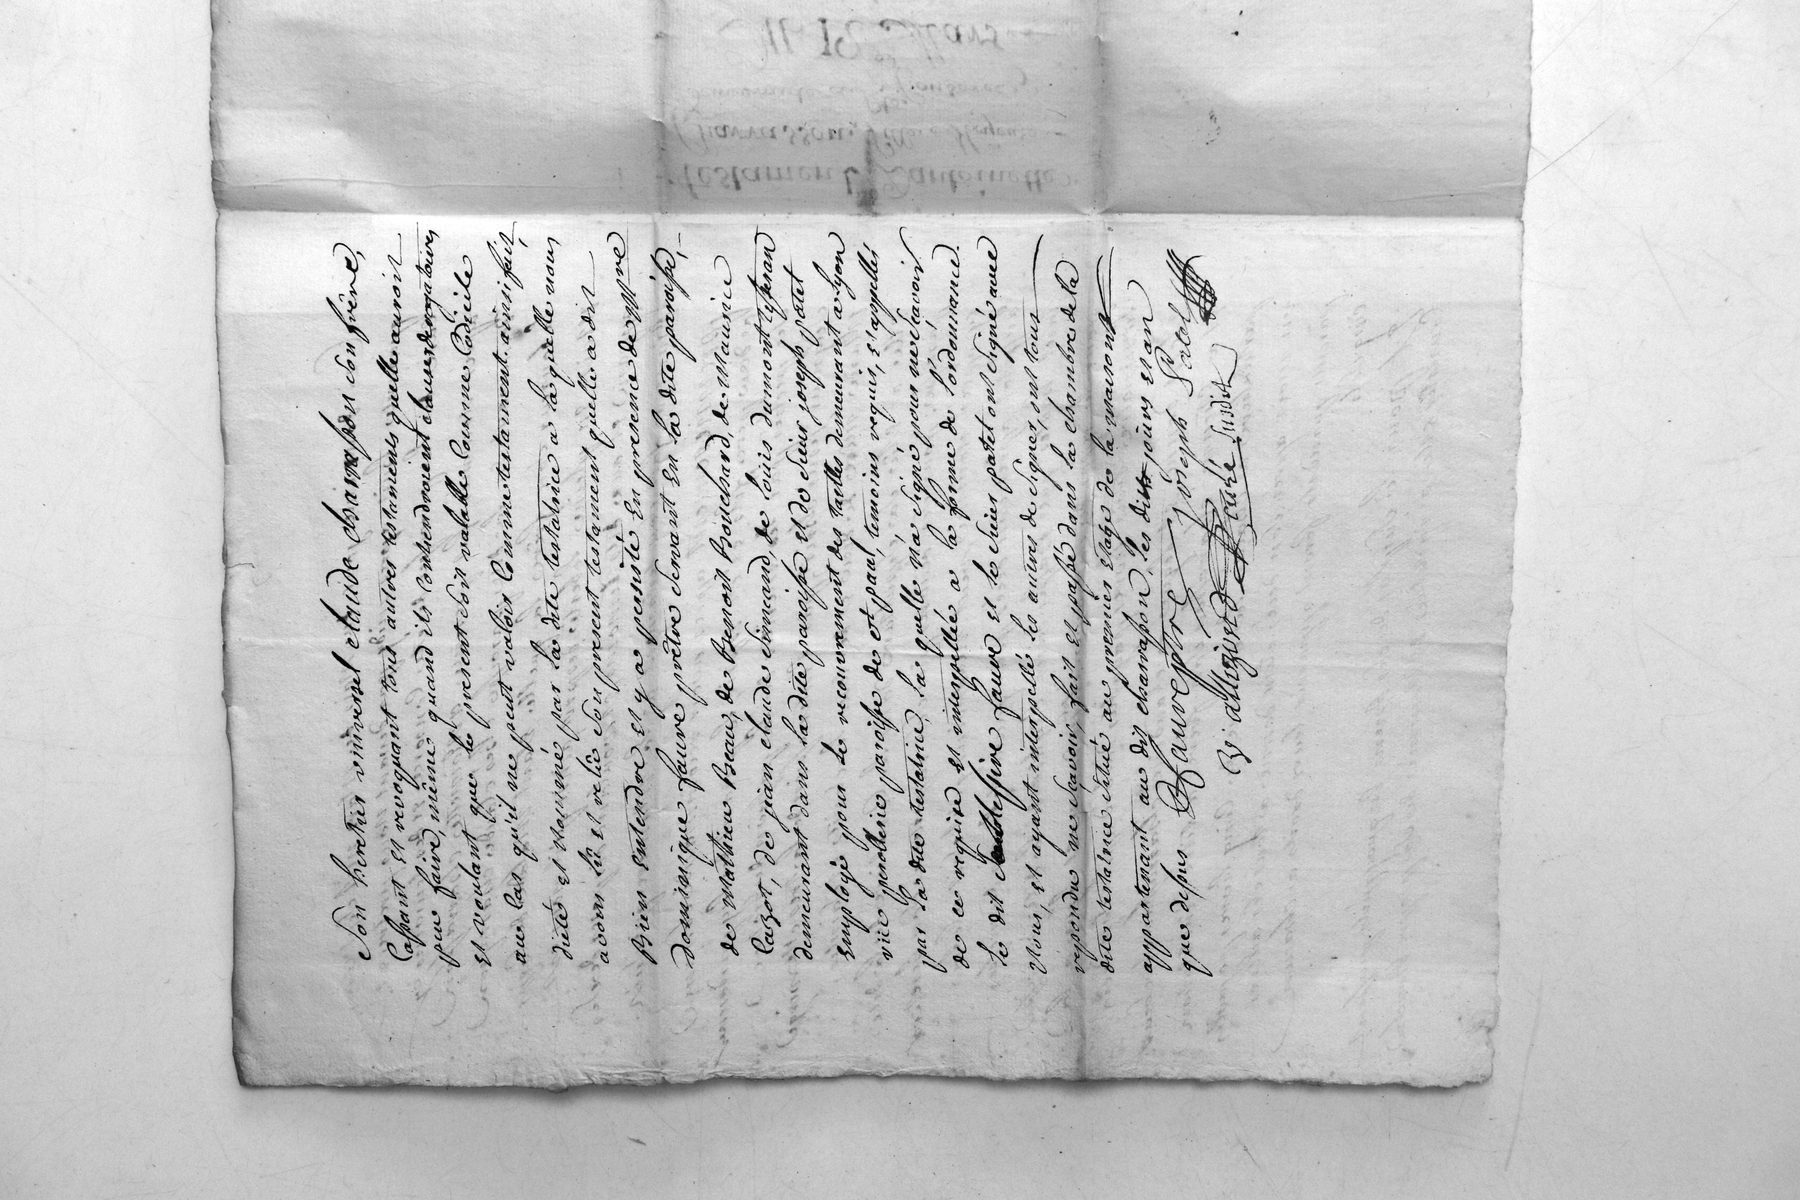 son heretier universel claude charvasson son frère,
Cassant et revoquant tous autres testaments quelle auroit
peu faire, même quand ils contiendroient clauses derogatoires
et voulant que le present soit valable Comme Codicile
au cas qu'il ne peut valoir Comme testament. ainsi fait,
dicté et nommé par la dite testatrice a la quelle nous
avons lû et relû son present testament quelle a dit
Bien entendre et y a persisté En presence de Mre
dominique faure prêtre servant En la dite paroisse,
de Mathieu Beau, de Benoit Bouchard, de Maurice
Cazot, de jean claude Simeand, de louis dumont
demeurant dans la dite paroisse et de sieur joseph patet
employé pour le recouvrement des tailles demeurant a lyon
paroisse de et paul, temoins requis, s'appellés
par la dite testatrice, la quelle n'a signé pour ne sçavoir
de ce requise et interpellée a la forme de l'ordonnance.
le dit messire faure et le sieur patet ont signé avec
Nous, et ayant interpellé les autres de signer, ont tous
repondu ne sçavoir, fait et passé dans la chambre de la
dite testatrice située au premier etage de la maison
appartenant au dit charvasson, les dits jours et an
que dessus Faure ptre Joseph Patet
curé susdit
Testament D'antoinette
Charvasson,
Du 12 Mars